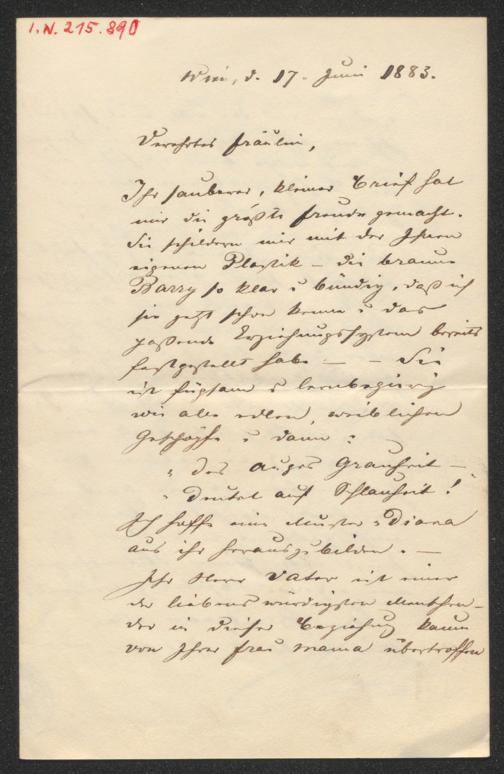 I.N. 215.890
Wien, d. 17. Juni 1883.
Verehrtes Fräulein,
Ihr sauberer, kleiner Brief hat
mir die größte Freude gemacht.
Sie schildern mir mit der Ihnen
eigenen Plastik – die braune
Barry so klar u bündig, daß ich
sie jetzt schon kenne u das
passende Erziehungssystem bereits
festgestellt habe — – Sie
ist fügsam u lernbegierig
wie alle edlen, weiblichen
Geschöpfe u dann:
„ des Auges Grauheit —
„ Deutet auf Schlauheit!“
Ich hoffe eine Muster-Diana
aus ihr herauszubilden. —
Ihr Herr Vater ist einer
der liebenswürdigsten Menschen –
der in dieser Beziehung kaum
von Ihrer Frau Mama übertroffen